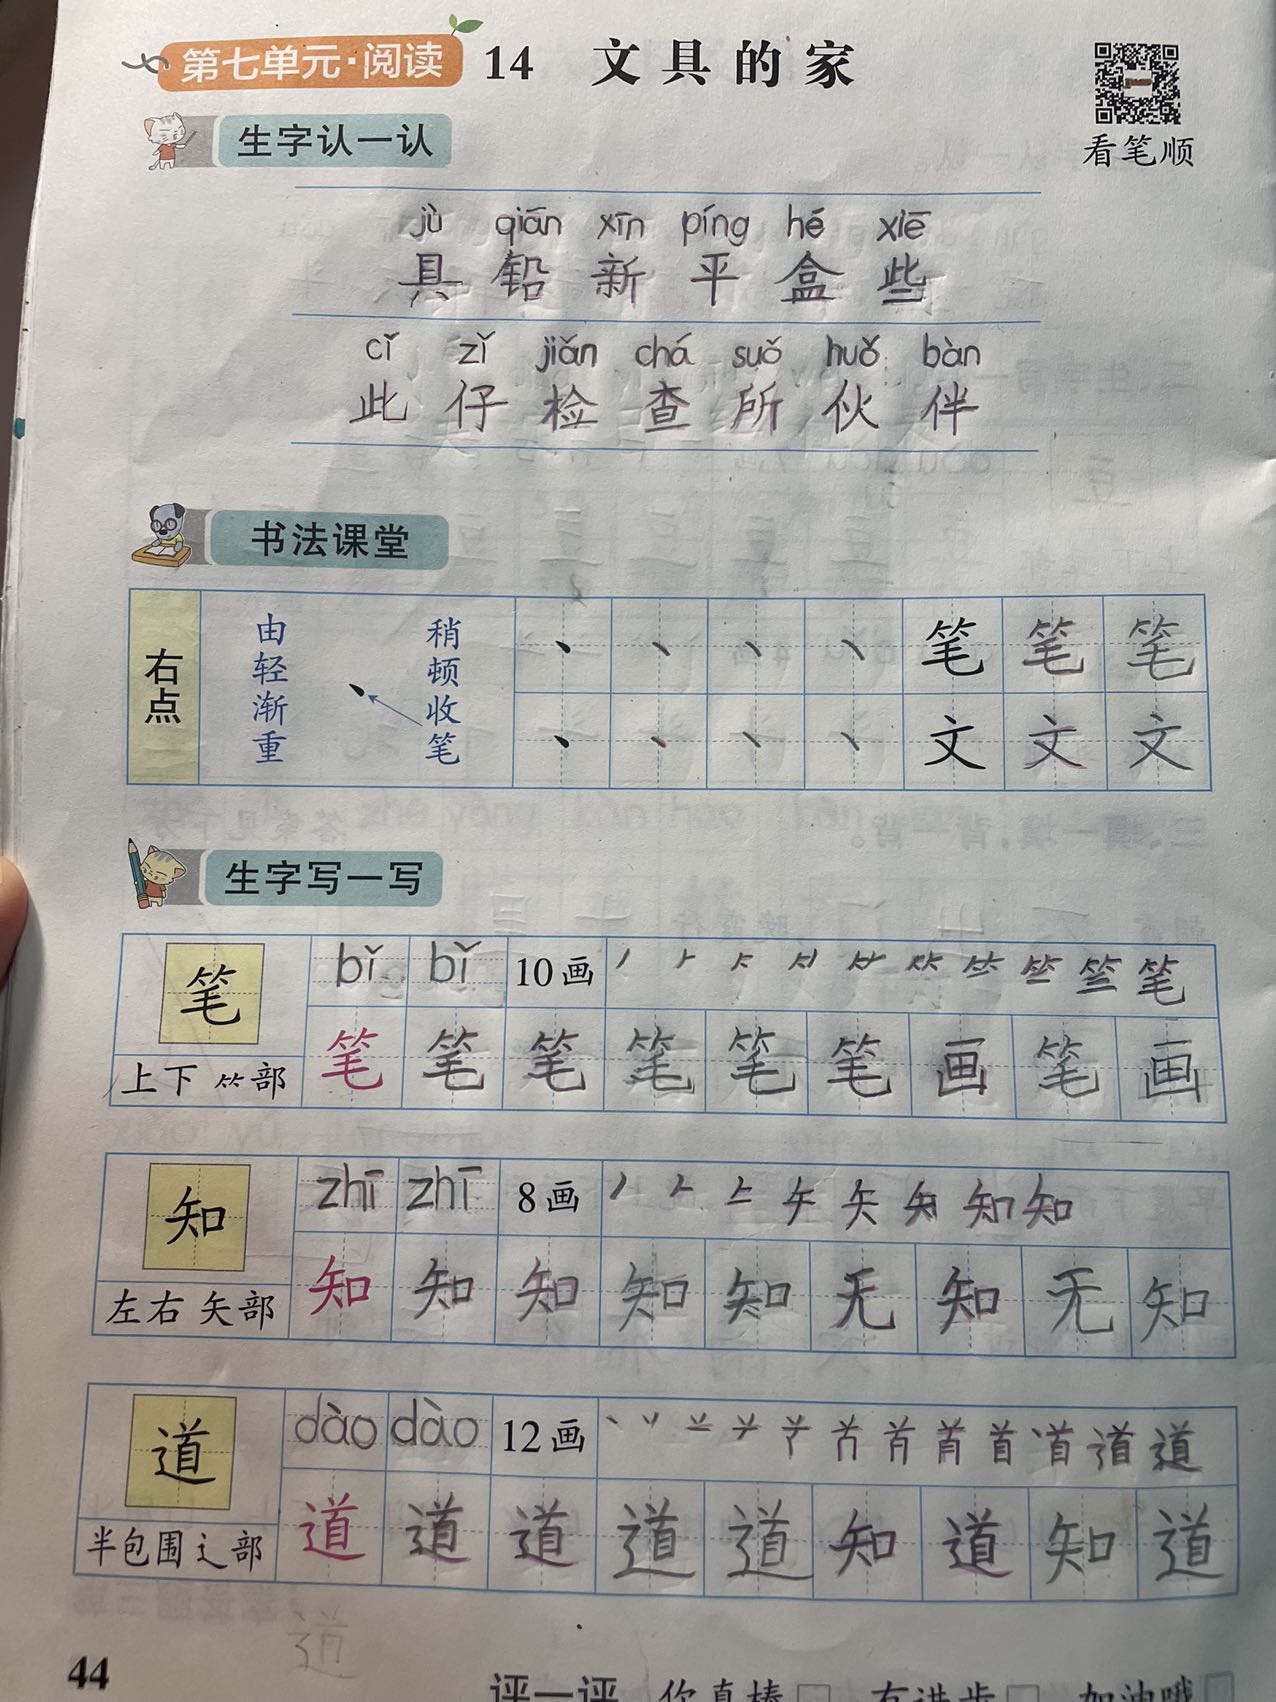 第七单元·阅读 14 文具的家
看笔顺
生字认一认
jù qiān xīn píng hé xiē
具 铅 新 平 盒 些
cǐ zǐ jiǎn chá suǒ huǒ bàn
此 仔 检 查 所 伙 伴
书法课堂
右点 由轻渐重 稍顿收笔 笔 笔 笔
文 文 文
生字写一写
笔 bǐ bǐ 10画 笔
上下 ⺮部 笔 笔 笔 笔 笔 笔 画 笔 画
知 zhī zhī 8画 知
左右 矢部 知 知 知 知 知 无 知 无 知
道 dào dào 12画 道
半包围 辶部 道 道 道 道 道 知 道 知 道
道
44 评一评 你真棒 有进步 加油哦